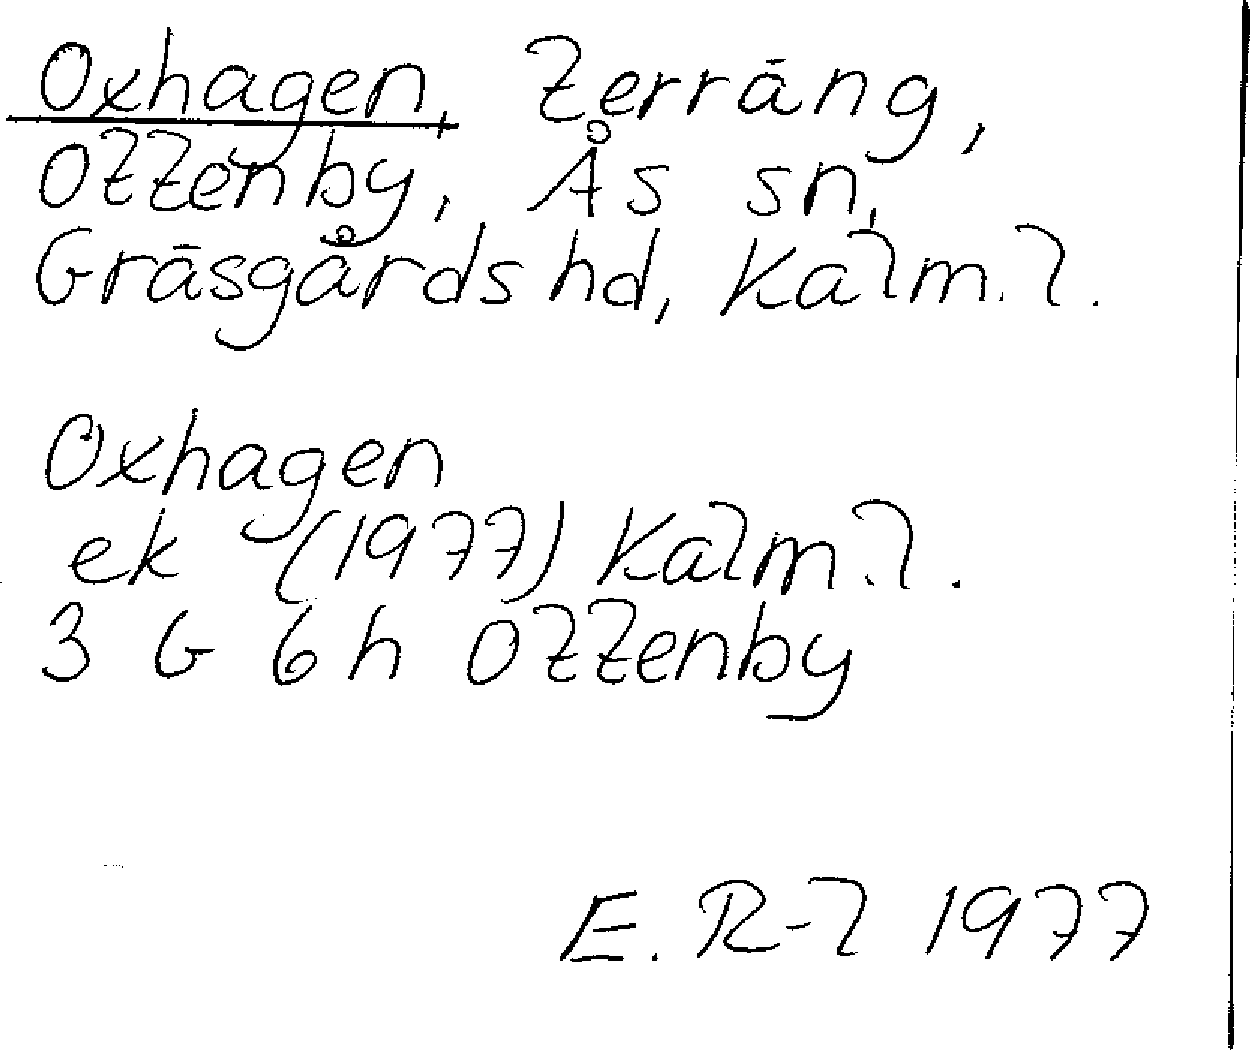 Oxhagen, terräng,
Ottenby, Ås sn,
Gräsgårds hd, Kalm. l.
Oxhagen
ek (1977) Kalm. l.
3 G 6 h Ottenby
E. R-l 1977